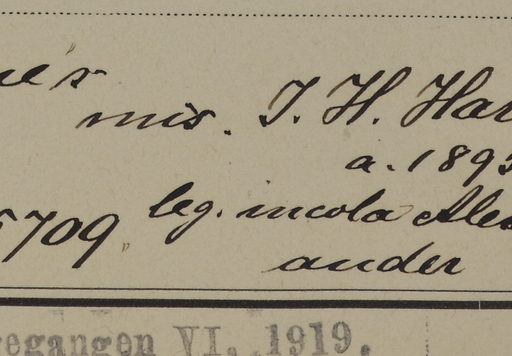 mis. J. H. Har
a. 1895
5709 leg. incola Alex
ander
egangen VI. 1919.